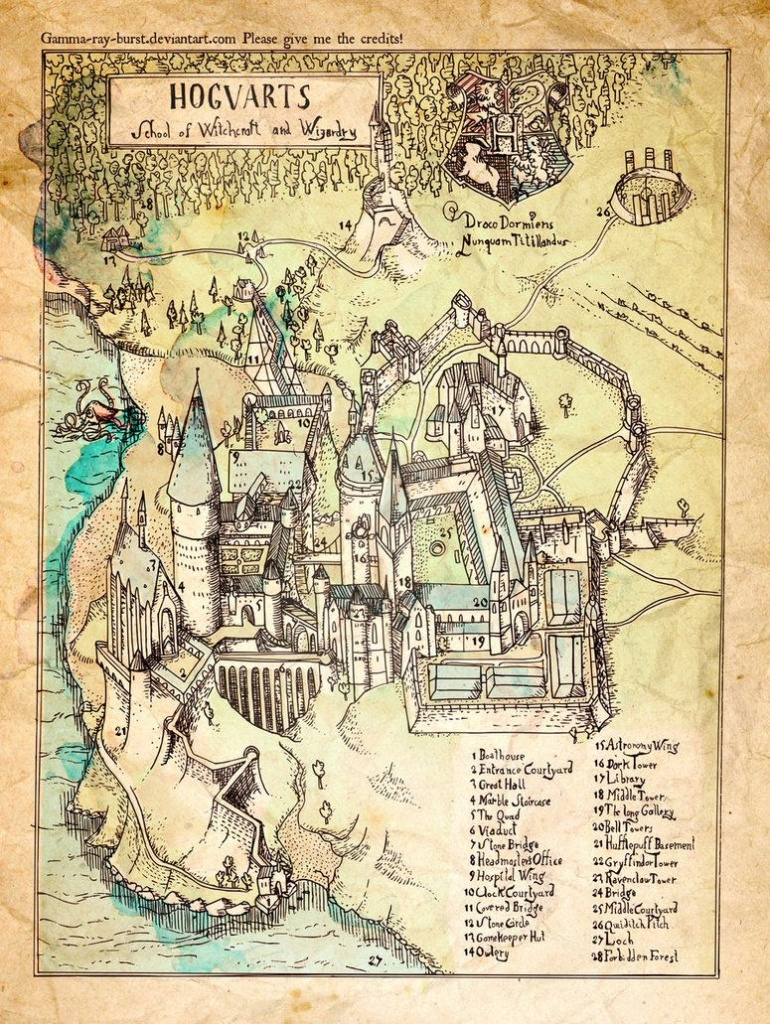 Gamma-ray-burst.deviantart.com Please give me the credits!
HOGVARTS
School of Witchcraft and Wizardry
H
Draco Dormiens
Nunquam Titillandus
28
14
12
13
26
11
10
17
8
9
15
22
25
16
24
3
4
18
5
20
19
2
21
27
1 Boathouse
2 Entrance Courtyard
3 Great Hall
4 Marble Staircase
5 The Quad
6 Viaduct
7 Stone Bridge
8 Headmosters Office
9 Hospital Wing
10 Clock Courtyard
11 Covered Bridge
12 Stone Circle
13 Gamekeeper Hut
14 Owlery
15 Astronomy Wing
16 Dark Tower
17 Library
18 Middle Tower
19 The long Gallery
20 Bell Towers
21 Hufflepuff Basement
22 Gryffindor Tower
23 Ravenclaw Tower
24 Bridge
25 Middle Courtyard
26 Quiditch Pitch
27 Loch
28 Forbidden Forest